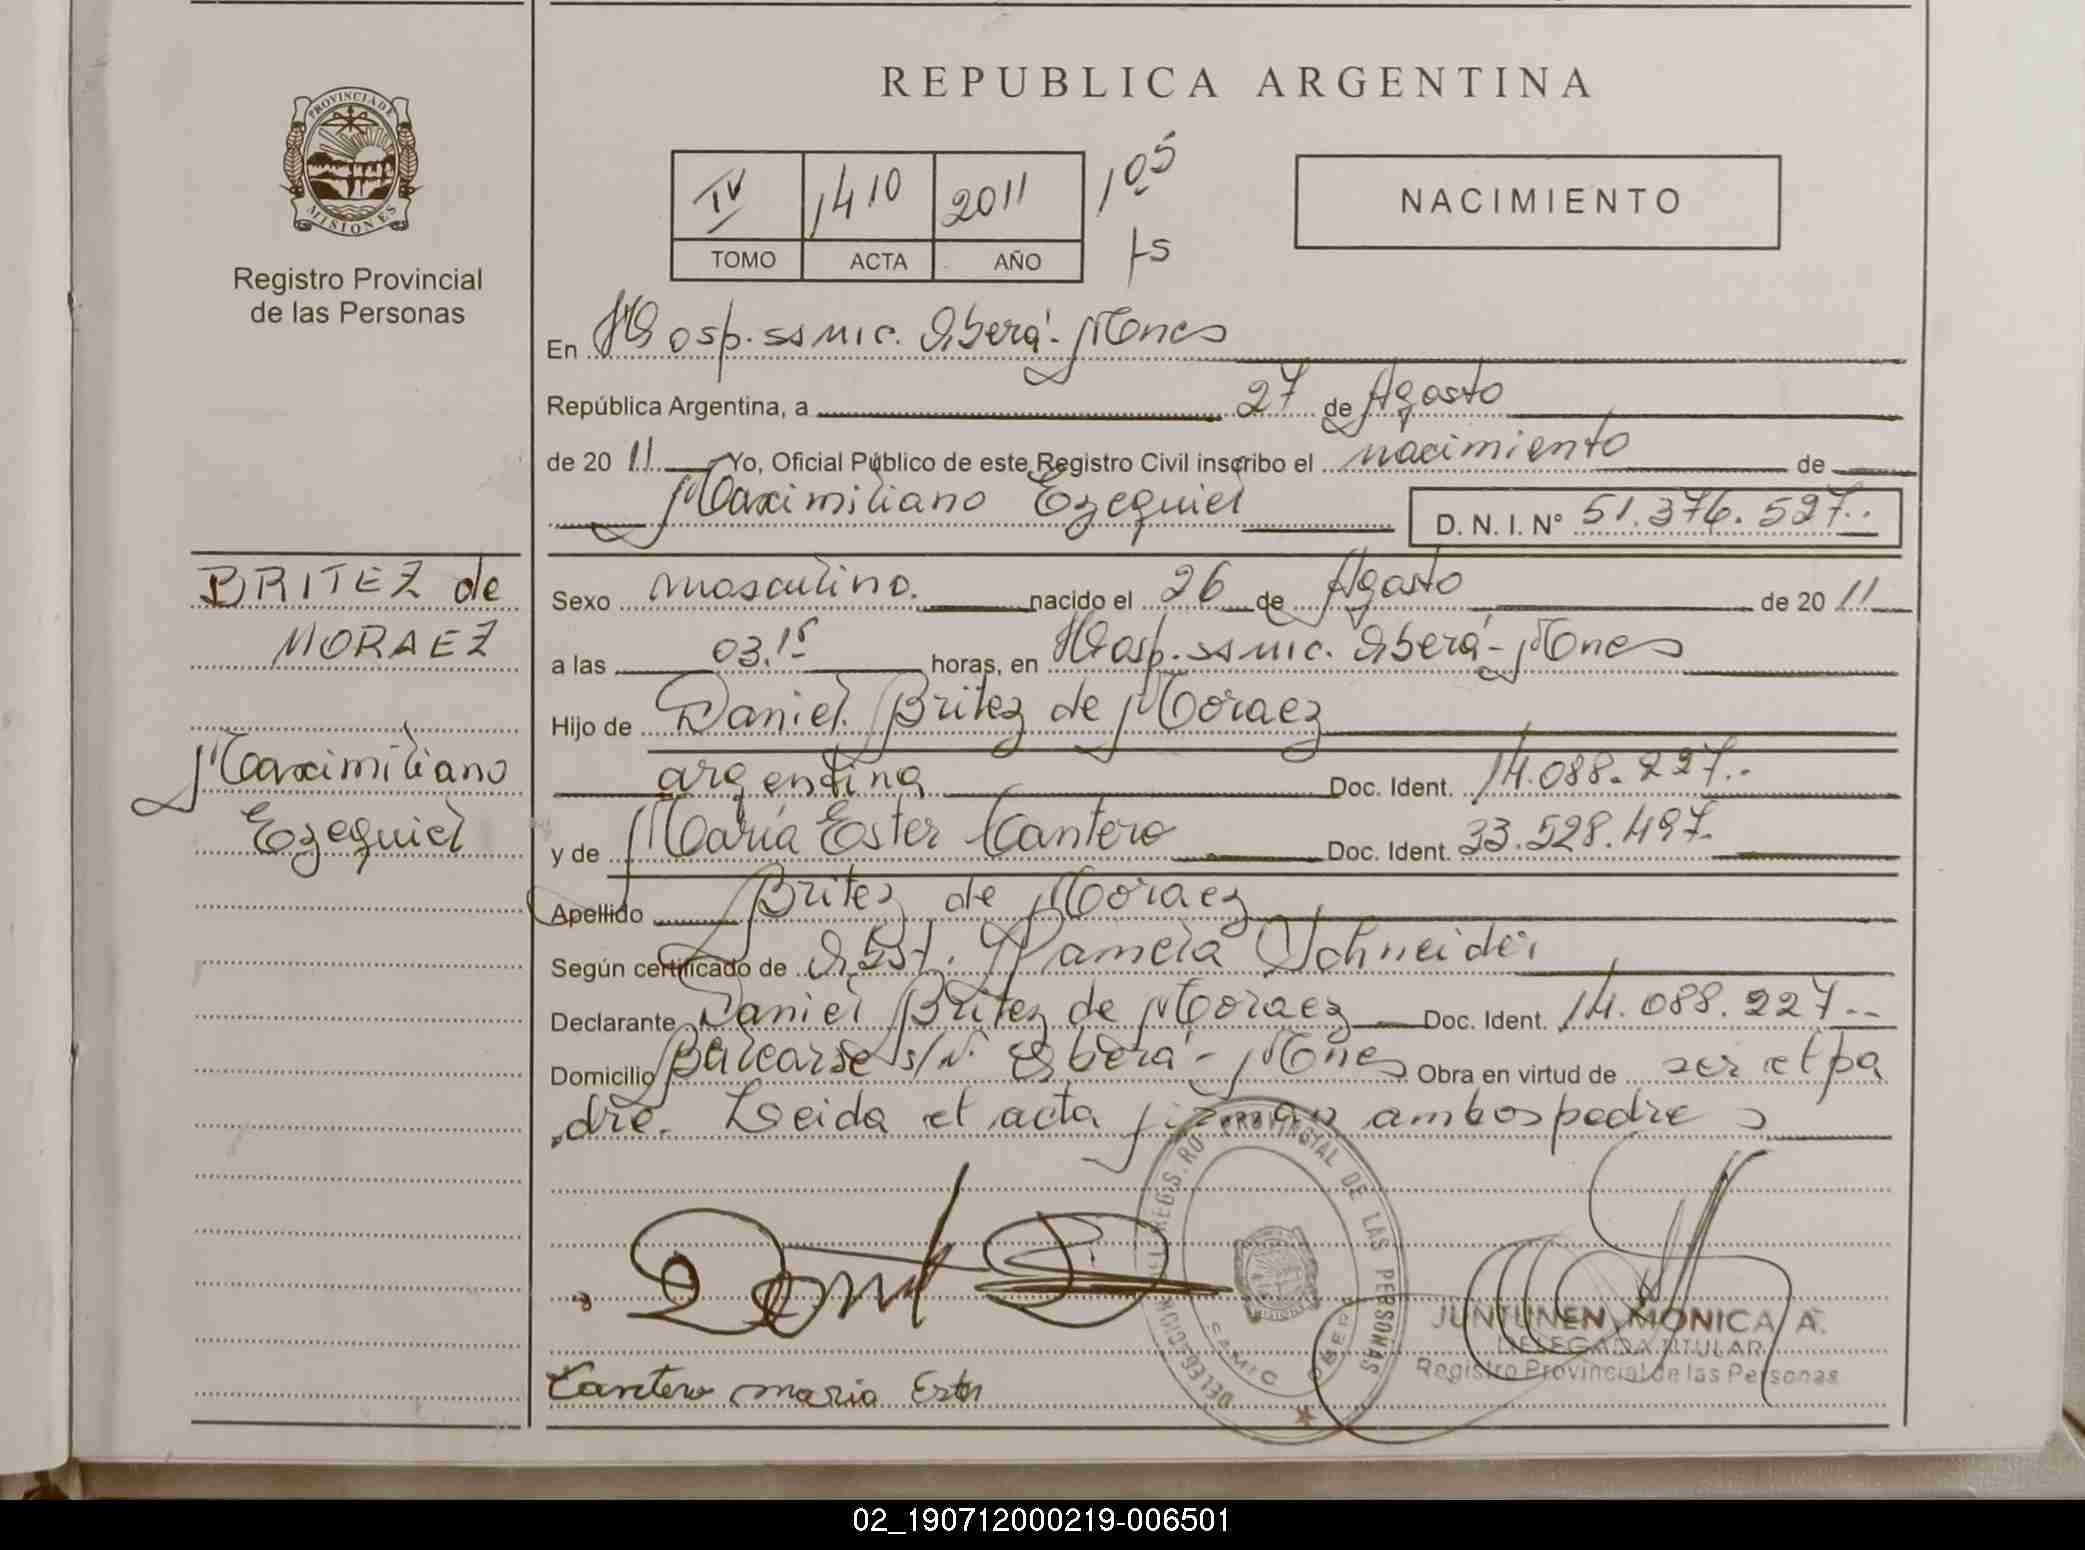 REPUBLICA ARGENTINA
PROVINCIA DE MISIONES
Registro Provincial
de las Personas
IV 1410 2011
TOMO ACTA AÑO
105
fs
NACIMIENTO
En Hosp. ssmic. Oberá - Mnes
República Argentina, a 27 de Agosto
de 20 11 Yo, Oficial Público de este Registro Civil inscribo el nacimiento de
Maximiliano Ezequiel D. N. I. N° 51.376.527..
BRITEZ de
MORAEZ
Maximiliano
Ezequiel
Sexo masculino. nacido el 26 de Agosto de 20 11
a las 03.15 horas, en Hosp. ssmic. Oberá - Mnes
Hijo de Daniel Britez de Moraez
argentina Doc. Ident. 14.088.227..
y de María Ester Cantero Doc. Ident. 33.528.497.
Apellido Britez de Moraez
Según certificado de Obst. Pamela Schneider
Declarante Daniel Britez de Moraez Doc. Ident. 14.088.227--
Domicilio Balcarse s/N° Oberá - Mnes Obra en virtud de ser el pa
dre. Leida el acta firman ambos padres
REGISTRO PROVINCIAL DE LAS PERSONAS
DELEGACION
SAMIC OBERA
Cantero maria Ester
JUNTUNEN MONICA A.
DELEGADA TITULAR
Registro Provincial de las Personas
02_190712000219-006501